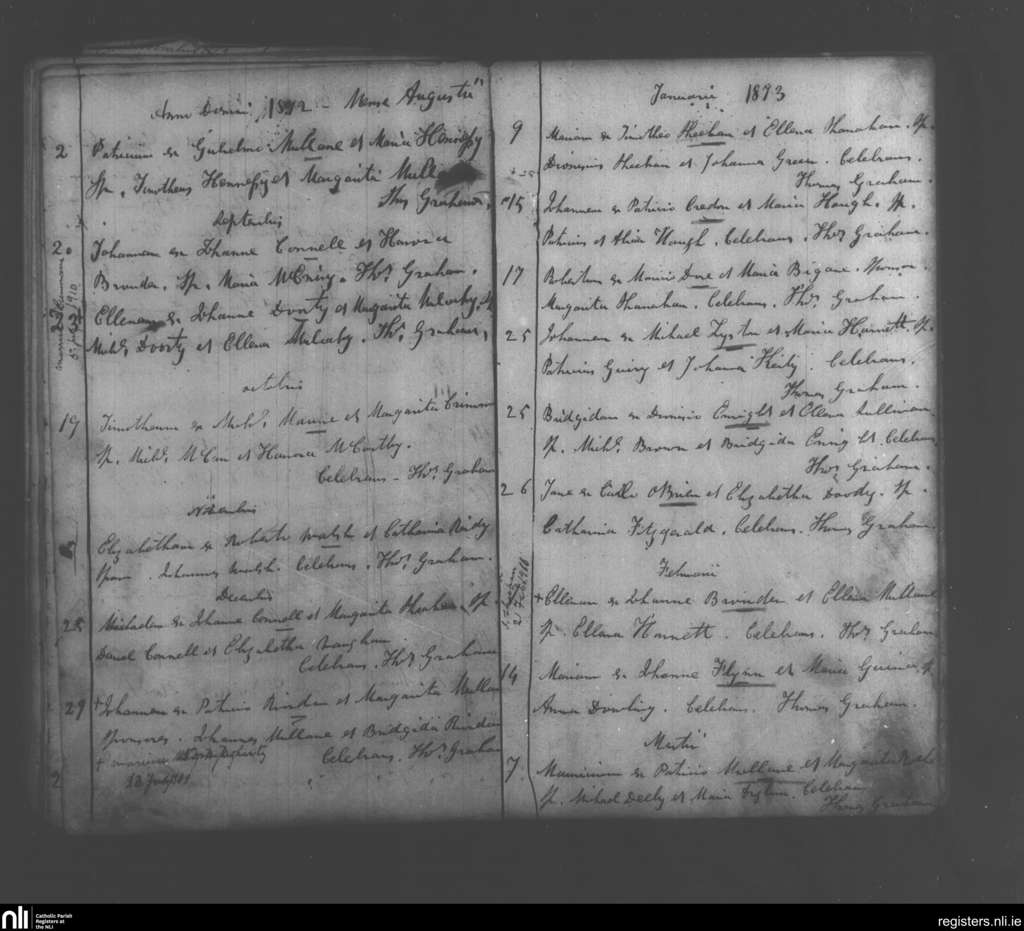 Anno Domini 1892 - Mense Augusti
2 Patricium ex Gulielmo Mullane et Maria Hennessy
Sp. Timotheus Hennessy et Margarita
Thos Graham
Septembris
20 Johannem ex Johanne Connell et Honora
Sp. Maria McEniry. Thos. Graham.
Ellenam ex Johanne Doorty et Margarita Mulcahy. Sp
Michl. Doorty et Ellena Mulcahy. Thos. Graham.
Octobris
19 Timotheum ex Michl. et Margarita
Sp. Michl. et Honora McCarthy.
Celebrans - Thos. Graham
Novembris
Elizabetham ex Roberto Walsh et Catharina Reidy
Johannes Walsh. Celebrans. Thos. Graham.
Decembris
25 Michaelem ex Johanne Connell et Margarita Sheehan. Sp
Daniel Connell et Elizabetha Vaughan
Celebrans. Thos Graham
29 + Johannem ex Patricio Riordan et Margarita Mullane
Sponsores. Johannes Mullane et Bridgida Riordan
Celebrans. Thos. Graham
2
Januarii 1893
9 Mariam ex Timotheo Sheehan et Ellena Shanahan. Sp.
Dionysius Sheehan et Johanna Green. Celebrans.
Thomas Graham.
15 Johannem ex Patricio Credon et Maria Hough. Sp.
Patricius et Alicia Hough. Celebrans. Thos. Graham.
17 Robertum ex Mauritio Dore et Maria Bigane.
Margarita Shanahan. Celebrans. Thos. Graham.
25 Johannem ex Michael et Maria Harnett. Sp.
Patricius et Johanna Celebrans.
Thomas Graham.
25 Bridgidam ex Dionysio Enright et Ellena Sullivan
Sp. Michl. Brown et Bridgida Enright. Celebrans
Thos. Graham.
26 Jane ex O'Brien et Elizabetha Doody. Sp.
Catharina Fitzgerald. Celebrans. Thomas Graham.
Februarii
+ Ellenam ex Johanne et Ellena Mullane
Sp. Ellena Harnett. Celebrans. Thos. Graham
14 Mariam ex Johanne Flynn et Maria Sp
Anna Dowling. Celebrans. Thomas Graham.
Martii
7 ex Patricio Mullane et Margarita
Sp. Michael et Maria Celebrans
Thomas Graham
nli Catholic Parish
Registers at
the NLI
registers.nli.ie